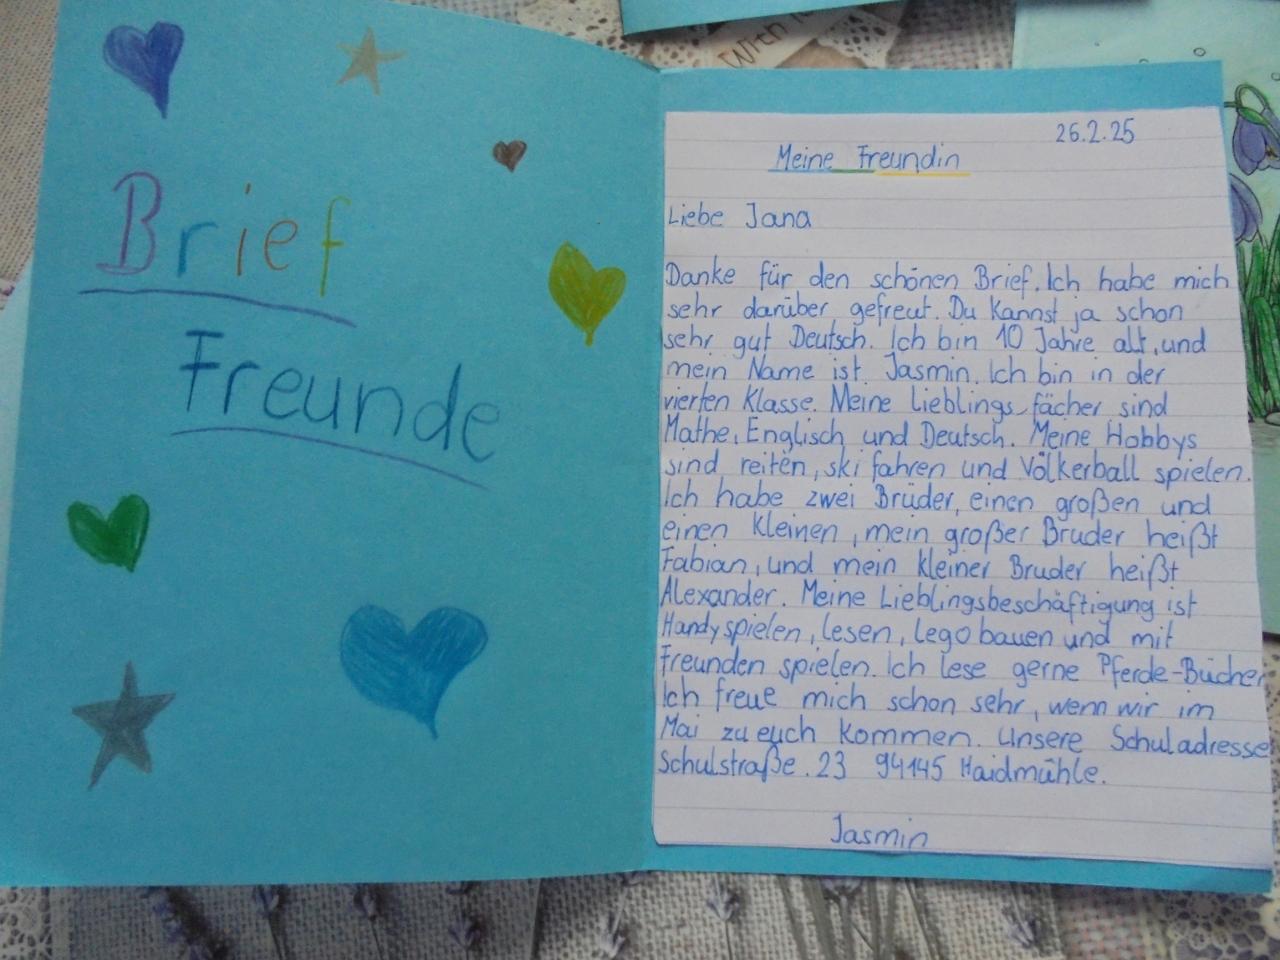 Brief
Freunde
With
26.2.25
Meine Freundin
Liebe Jana
Danke für den schönen Brief. Ich habe mich
sehr darüber gefreut. Du kannst ja schon
sehr gut Deutsch. Ich bin 10 Jahre alt, und
mein Name ist Jasmin. Ich bin in der
vierten Klasse. Meine Lieblings fächer sind
Mathe, Englisch und Deutsch. Meine Hobbys
sind reiten, ski fahren und Völkerball spielen.
Ich habe zwei Brüder, einen großen und
einen kleinen, mein großer Bruder heißt
Fabian, und mein kleiner Bruder heißt
Alexander. Meine Lieblingsbeschäftigung ist
Handy spielen, lesen, lego bauen und mit
Freunden spielen. Ich lese gerne Pferde-Bücher
Ich freue mich schon sehr, wenn wir im
Mai zu euch kommen. Unsere Schuladresse
Schulstraße.23 94145 Haidmühle.
Jasmin